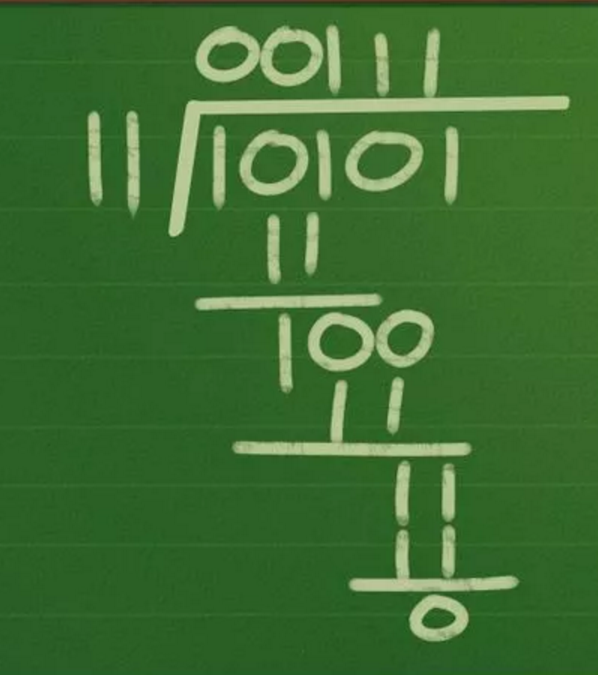 00111
11 10101
11
100
11
11
11
0